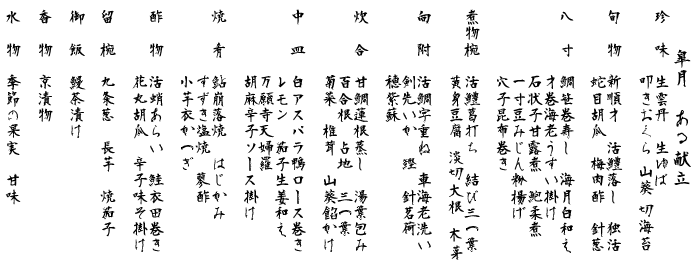 皐月 ある献立
珍味 生雲丹 生ゆば
叩きおくら 山葵 切海苔
旬物 新順才 活鱧落し 独活
蛇目胡瓜 梅肉酢 針葱
八寸 鯛笹巻寿し 海月白和え
才巻海老うすい掛け
石伏子甘露煮 鮑柔煮
一寸豆みじん粉揚げ
穴子昆布巻き
煮物椀 活鱧葛打ち 結び三つ葉
黄身豆腐 淡切大根 木芽
向附 活鯛字重ね 車海老洗い
剣先いか 鰹 針茗荷
穂紫蘇
炊合 甘鯛蓮根蒸し 湯葉包み
百合根 占地 三つ葉
菊菜 椎茸 山葵餡かけ
中皿 白アスパラ鴨ロース巻き
レモン 茄子生姜和え
万願寺天婦羅
胡麻辛子ソース掛け
焼肴 鮎崩落焼 はじかみ
すずき塩焼 蓼酢
小芋衣かつぎ
酢物 活蛸あらい 鮭衣田巻き
花丸胡瓜 辛子味そ掛け
留椀 九条葱 長芋 焼茄子
御飯 鰻茶漬け
香物 京漬物
水物 季節の果実 甘味